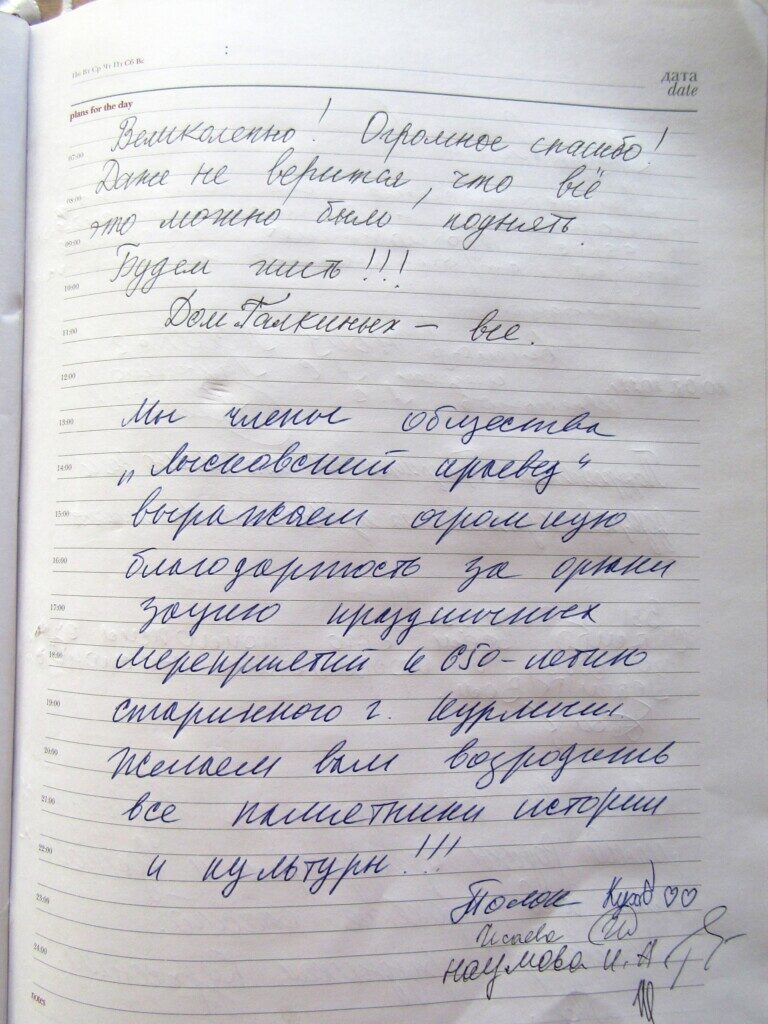 Пн Вт Ср Чт Пт Сб Вс
дата
date
plans for the day
Великолепно! Огромное спасибо!
07:00
Даже не верится, что всё
08:00
это можно было поднять.
09:00
Будем жить!!!
10:00
Дом Галкиных – все.
11:00
12:00
Мы члены общества
13:00
„Лысковский краевед“
14:00
выражаем огромную
15:00
благодарность за органи
16:00
зацию праздничных
17:00
мероприятий к 650-летию
18:00
старинного г. Курмыш
19:00
Желаем вам возродить
20:00
все памятники истории
21:00
и культуры!!!
22:00
23:00
Исаева
24:00
Наумова И. А
notes